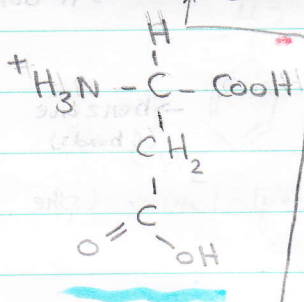 H
+H3N - C - COOH
CH2
C
O OH